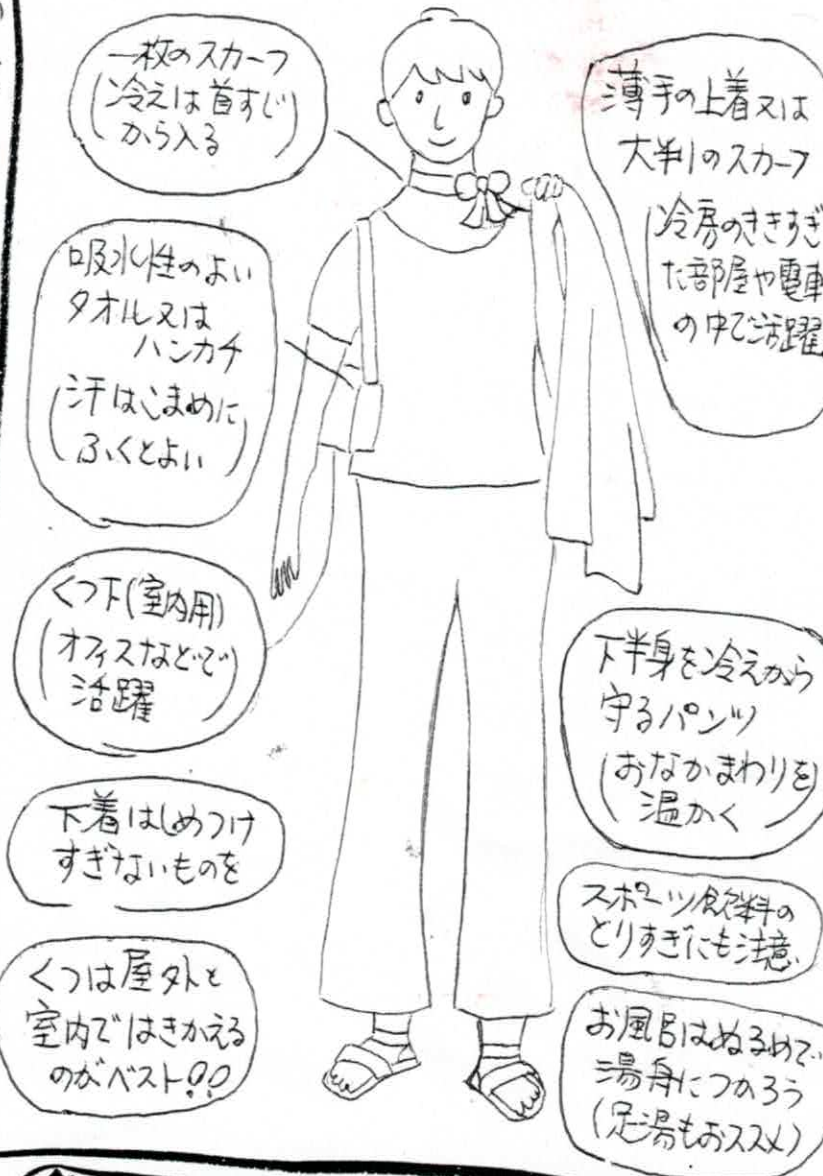 一枚のスカーフ
(冷えは首すじ
から入る)
吸水性のよい
タオル又は
ハンカチ
(汗はこまめに
ふくとよい)
くつ下(室内用)
(オフィスなどで
活躍)
下着はしめつけ
すぎないものを
くつは屋外と
室内ではきかえる
のがベスト!!
薄手の上着又は
大判のスカーフ
(冷房のききすぎ
た部屋や電車
の中で活躍
下半身を冷えから
守るパンツ
(おなかまわりを
温かく)
スポーツ飲料の
とりすぎにも注意
お風呂はぬるめで
湯身につかろう
(足湯もおススメ)